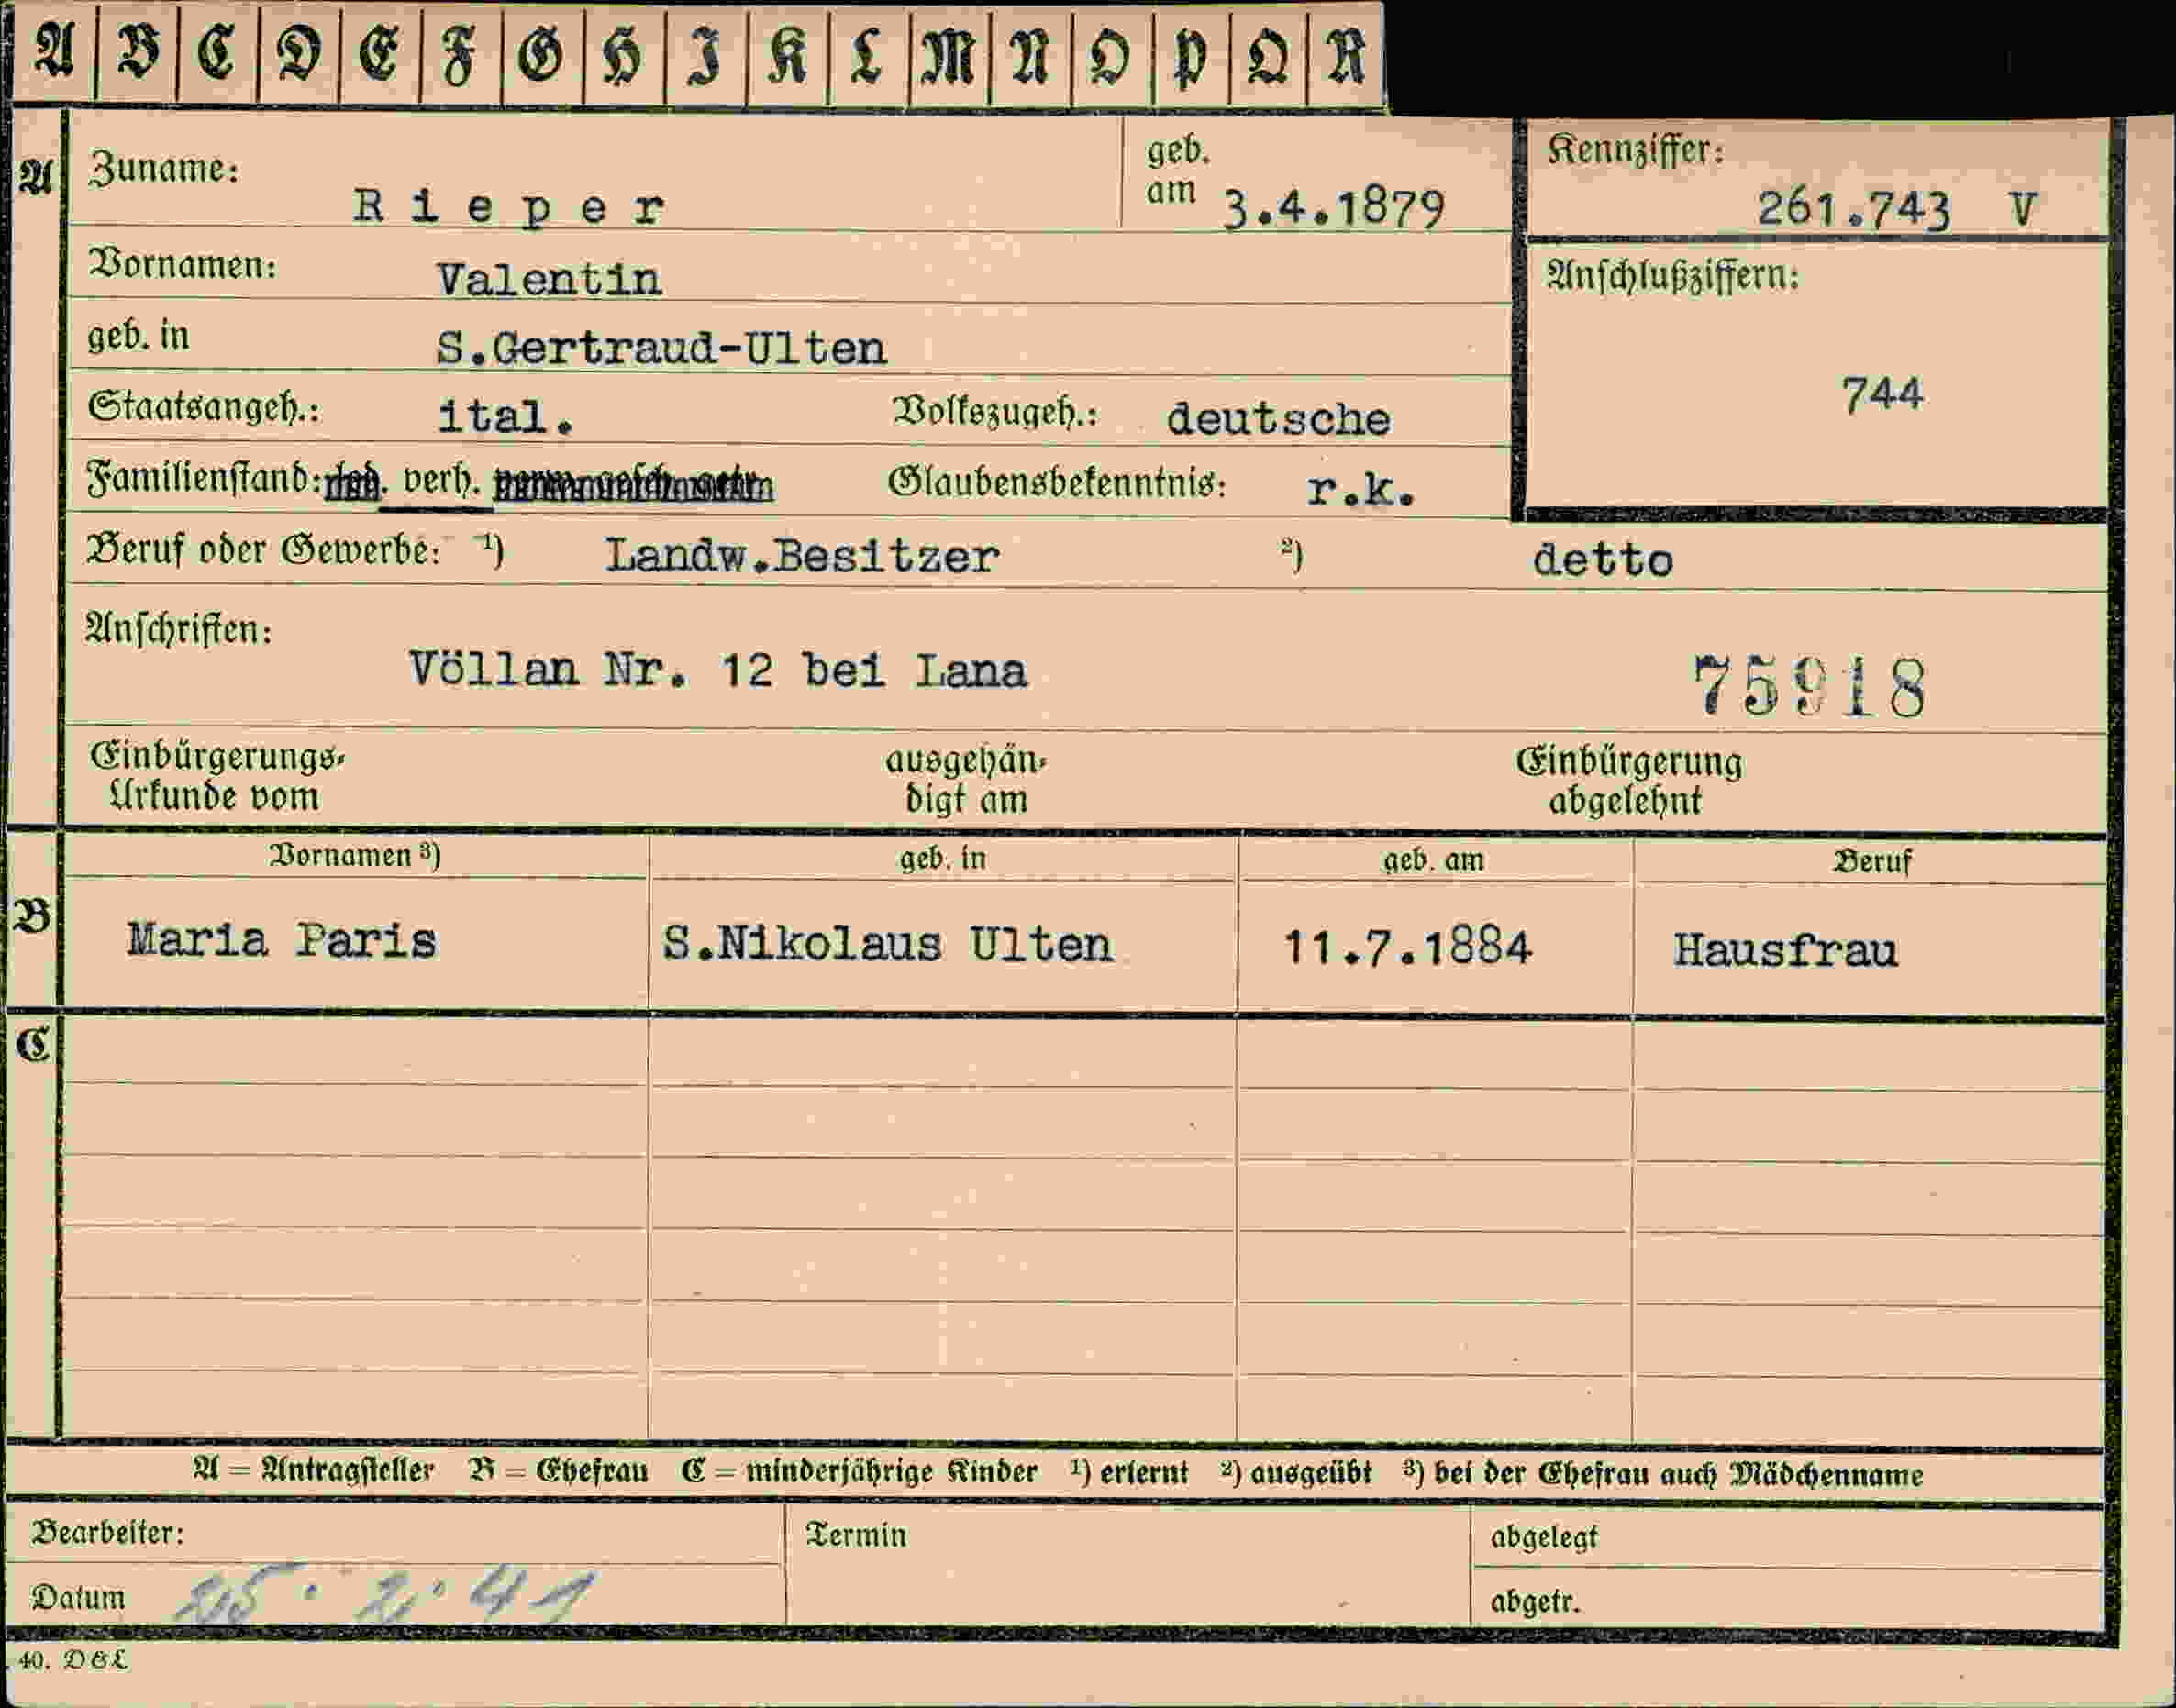 A B C D E F G H I K L M N O P Q R
A Zuname: Rieper geb. am 3.4.1879 Kennziffer: 261.743 V
Vornamen: Valentin Anschlußziffern:
geb. in S.Gertraud-Ulten
Staatsangeh.: ital. Volkszugeh.: deutsche 744
Familienstand: verh. Glaubensbekenntnis: r.k.
Beruf oder Gewerbe: ¹) Landw.Besitzer ²) detto
Anschriften:
Völlan Nr. 12 bei Lana 75918
Einbürgerungs- ausgehän- Einbürgerung
Urkunde vom digt am abgelehnt
Vornamen ³) geb. in geb. am Beruf
B Maria Paris S.Nikolaus Ulten 11.7.1884 Hausfrau
C
A = Antragsteller B = Ehefrau C = minderjährige Kinder ¹) erlernt ²) ausgeübt ³) bei der Ehefrau auch Mädchenname
Bearbeiter: Termin abgelegt
Datum 25. 2. 41 abgetr.
40. D&L